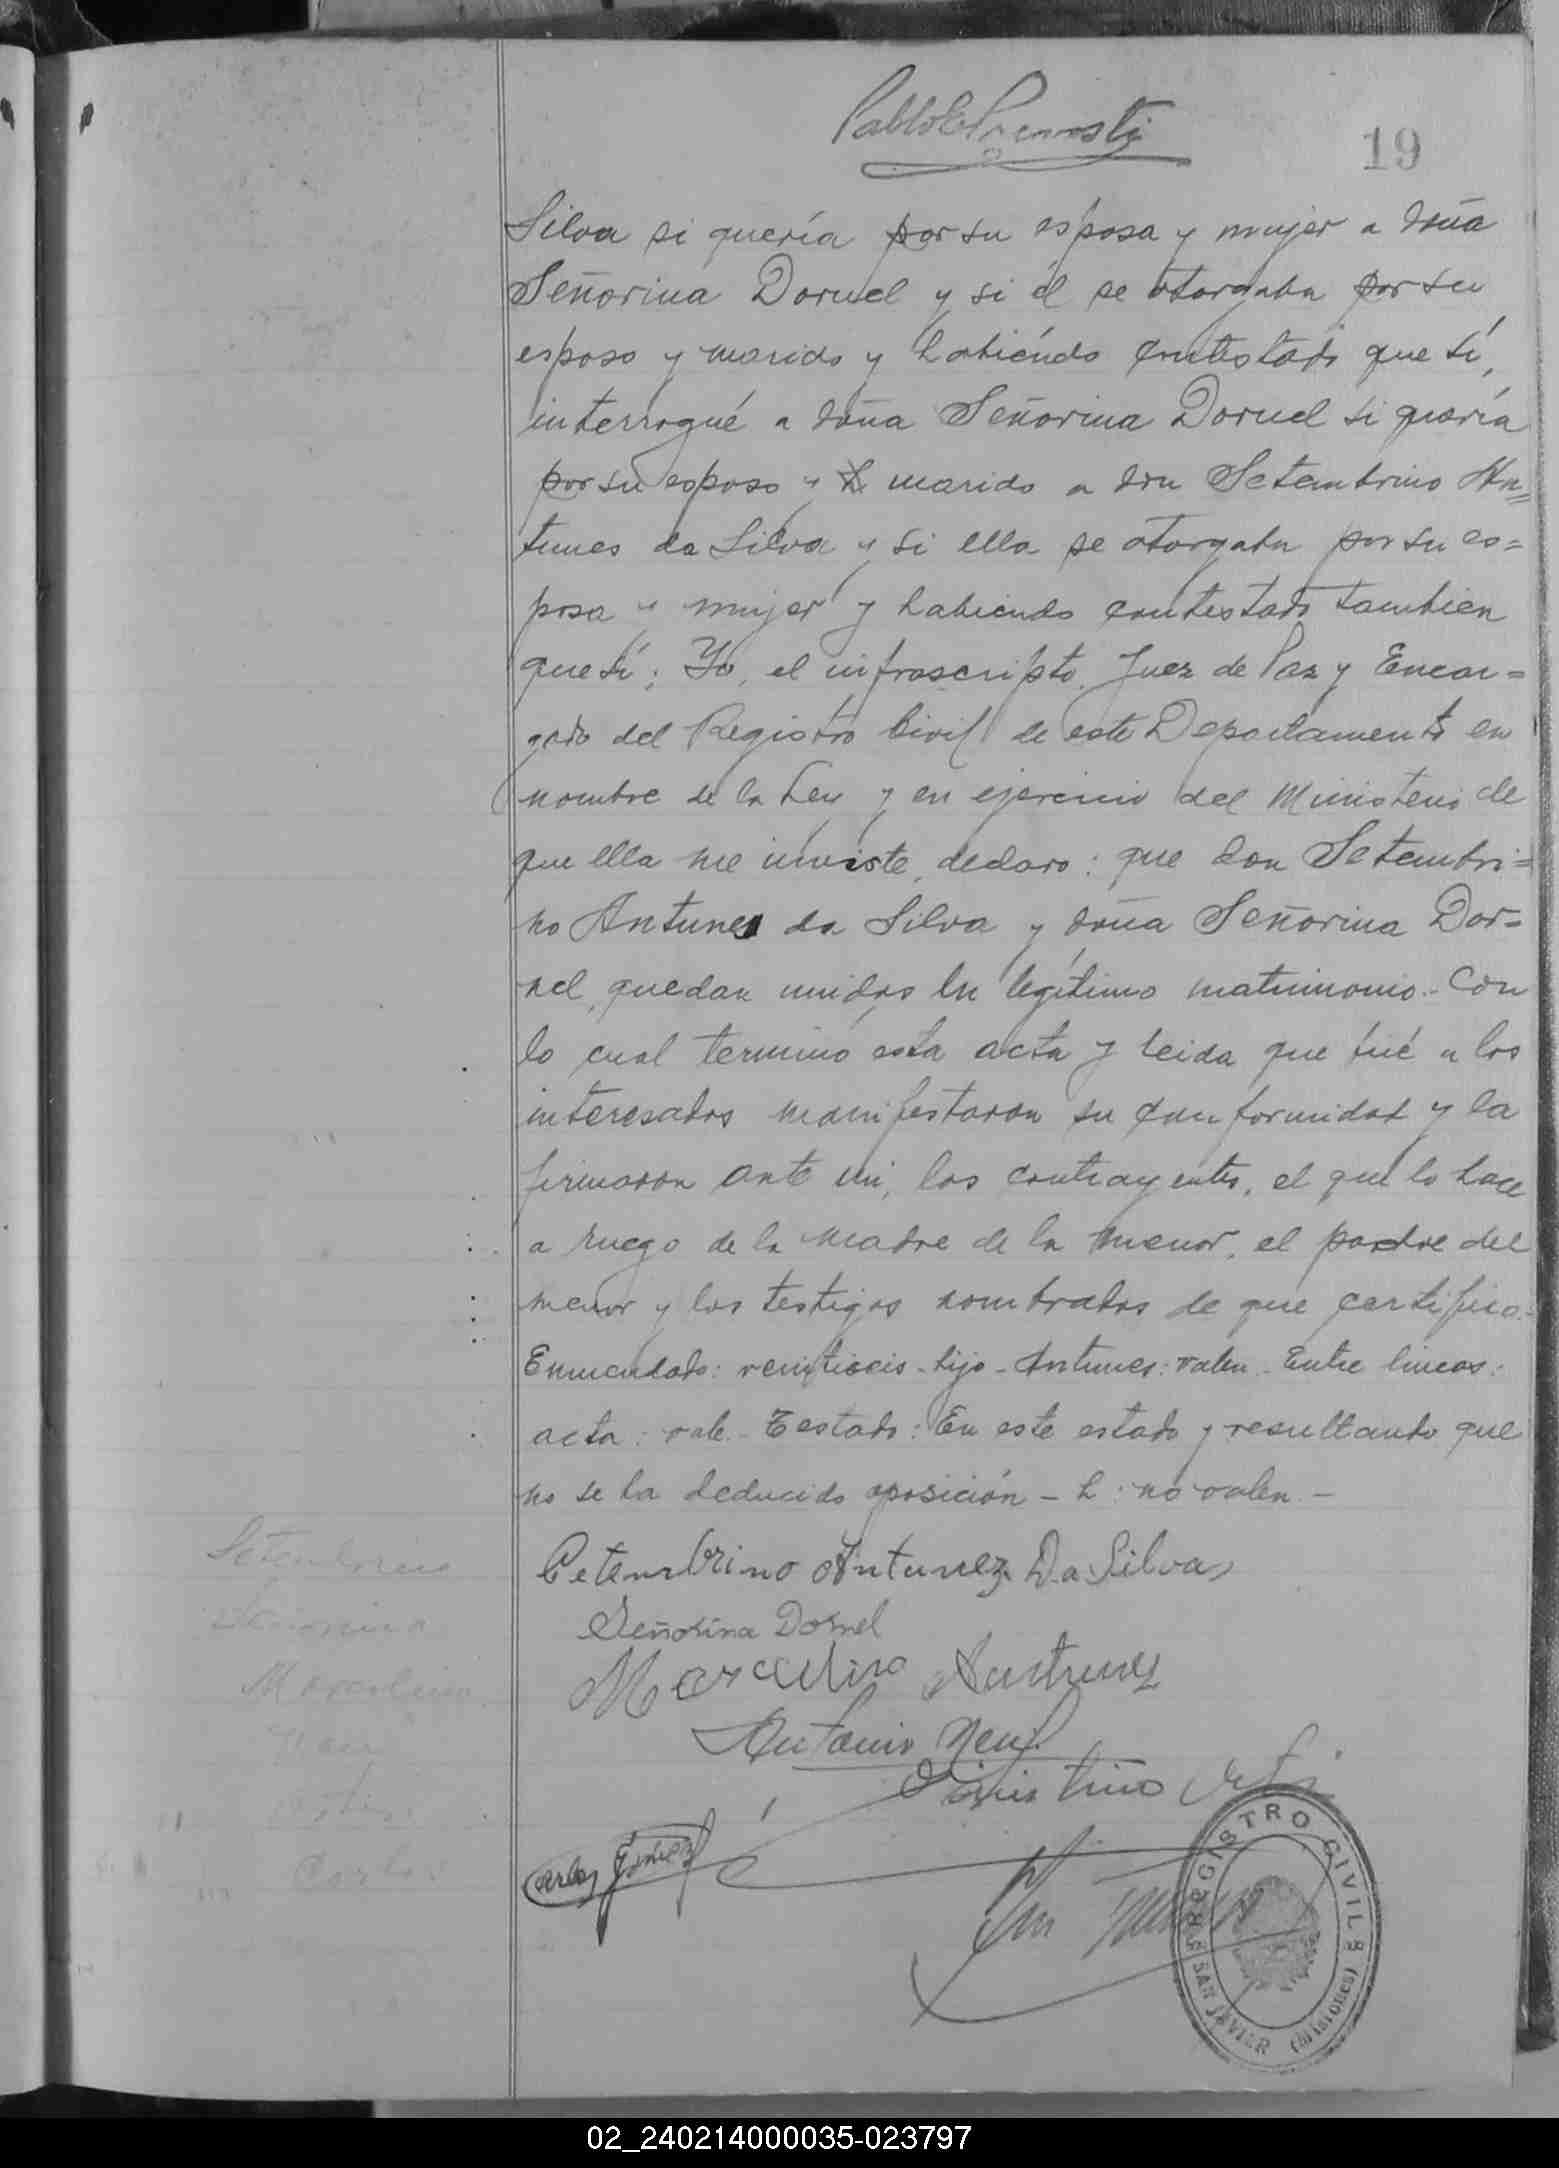 19
Silva si quería por su esposa y mujer a doña
Señorina Dornel y si él se otorgaba por su
esposo y marido y habiéndo contestado que sí,
interrogué a doña Señorina Dornel si quería
por su esposo y h marido a don Setembrino An=
tunes da Silva y si ella se otorgaba por su es=
posa y mujer y habiendo contestado tambien
que sí; Yo, el infrascripto, Juez de Paz y Encar=
gado del Registro Civil de este Departamento en
nombre de la Ley y en ejercicio del Ministerio de
que ella me inviste, declaro: que don Setembri=
no Antunes da Silva y doña Señorina Dor=
nel, quedan unidos en legítimo matrimonio.- Con
lo cual terminó esta acta y leida que fué a los
interesados manifestaron su conformidad y la
firmaron ante mi, los contrayentes, el que lo hace
a ruego de la madre de la menor, el padre del
menor y los testigos nombrados de que certifico.-
Enmendado: veintiseis - hijo - Antunes: valen.- Entre lineas:
acta: vale.- Testado: En este estado y resultando que
no se ha deducido oposición - h: no valen.-
Cetembrino Antunez Da Silva
Señorina Dornel
Marcelino Antunez
Antonio
Carlos Gomez
Setembrino
Señorina
Marcelino
Carlos
REGISTRO CIVIL
SAN JAVIER (Misiones)
02_240214000035-023797